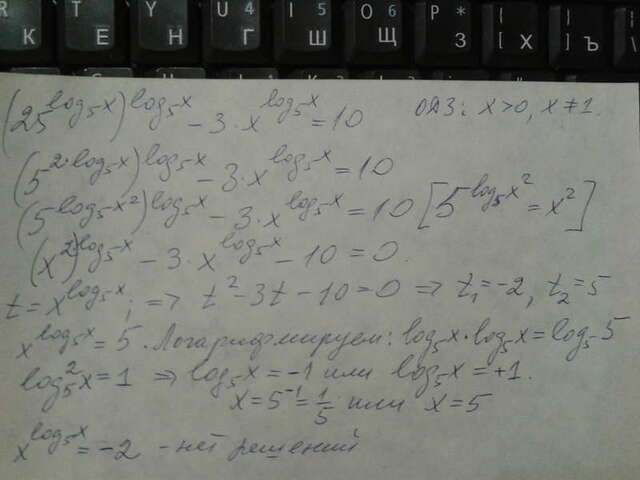 R T Y U 4 I 5 O 6 P * [ ]
К Е Н Г Ш Щ З Х Ъ
(25^(log₅x))^(log₅x) - 3·x^(log₅x) = 10 ОДЗ: x>0, x≠1.
(5^(2·log₅x))^(log₅x) - 3·x^(log₅x) = 10
(5^(log₅x²))^(log₅x) - 3·x^(log₅x) = 10 [5^(log₅x²) = x²]
(x²)^(log₅x) - 3·x^(log₅x) - 10 = 0.
t = x^(log₅x); => t² - 3t - 10 = 0 => t₁ = -2, t₂ = 5
x^(log₅x) = 5. Логарифмируем: log₅x·log₅x = log₅5
log₅²x = 1 => log₅x = -1 или log₅x = +1.
x = 5⁻¹ = 1/5 или x = 5
x^(log₅x) = -2 - нет решений